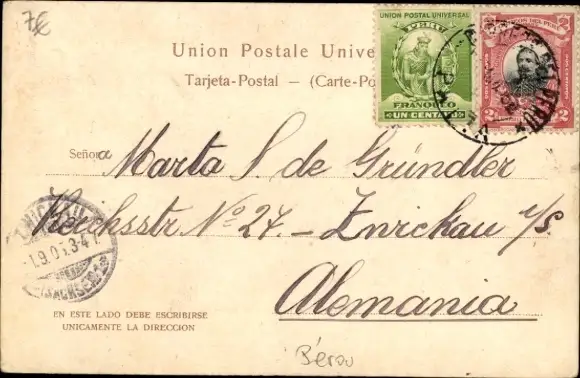 7€
UNION POSTAL UNIVERSAL
PERU
FRANQUEO
UN CENTAVO
2 2
Union Postale Unive
Tarjeta-Postal — (Carte-Po
Señora Marta S. de Gründler
Reichsstr No 27. - Zwickau i/s.
Alemania
ZWICKAU
1.9.0 .3-4
(SACHSEN)
EN ESTE LADO DEBE ESCRIBIRSE
UNICAMENTE LA DIRECCION